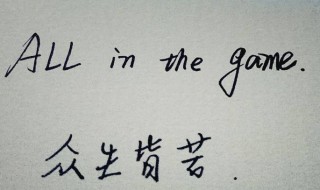 ALL in the game.
众生皆苦.